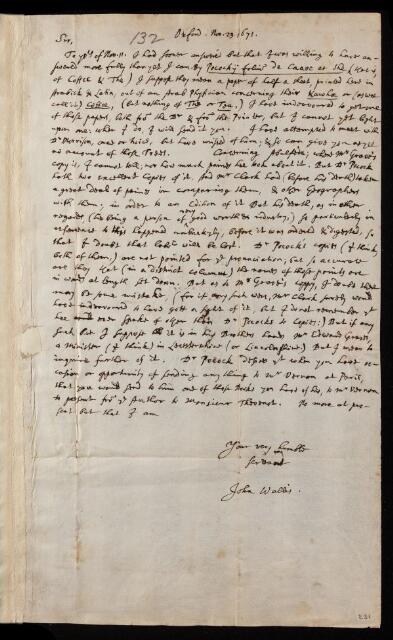 132
Oxford. Nov. 23. 1671.
Sir,
To yrs of Nov. 11. I had sooner answered but that I was willing to have an-
swered more fully than yet I can. By Pocockii folium De Cauae et The (that is
of Coffee & The) I suppose they mean a paper of half a sheet printed here in
Arabick & Latin, out of an Arab Physician concerning their Kauhi or (as wee
call it) Coffee, (but nothing of The or Tea.) I have indeavoured to get one
of those papers, both from the Dr & from the Printer, but I cannot yet light
upon one: when I do, I will send it you. I have attempted to meet with
Dr Morison, once or twice, but have missed of him; & so can give you as yet
no account of those Trees. Concerning Abulfeda; where Mr Greaves's
copy is, I cannot tell; nor how much paines hee took about it. But Dr Pocock
hath two excellent copies of it. And Mr Clark had (before his death) taken
a great deal of paines in comparing them, & other Geographers
with them; in order to an Edition of it. But his death, as in other
regards (hee being a person of very good worth & industry,) so particularly in
reference to this happened unluckily, before it was ordered & digested, so
that I doubt that labor will be lost. Dr Pococks copies (I think
both of them,) are not pointed for ye pronunciation; but so accurate
are they that (in a distinct column) the names of those points are
in words at length set down. But as to Mr Greaves's copy, I doubt there
may be some mistake (for if any such were, Mr Clark surely would
have indeavored to have got a sight of it, but I do not remember yt
hee ever spake of other than Dr Pococks two Copies:) But if any
such bee I suppose it is in his Brothers hand, Mr Edward Greaves,
a Minister (I think) in Leicestershire (or Lincolnshire) But I mean to
inquire further of it. Dr Pocock desires yt when you have oc-
casion or opportunity of sending any thing to Mr Vernon at Paris,
that you would send to him one of those Books you have of his, to Mr Vernon
to present from ye Author to Monsieur Thevenot. No more at pre-
sent but that I am
Your very humble
servant
John Wallis.